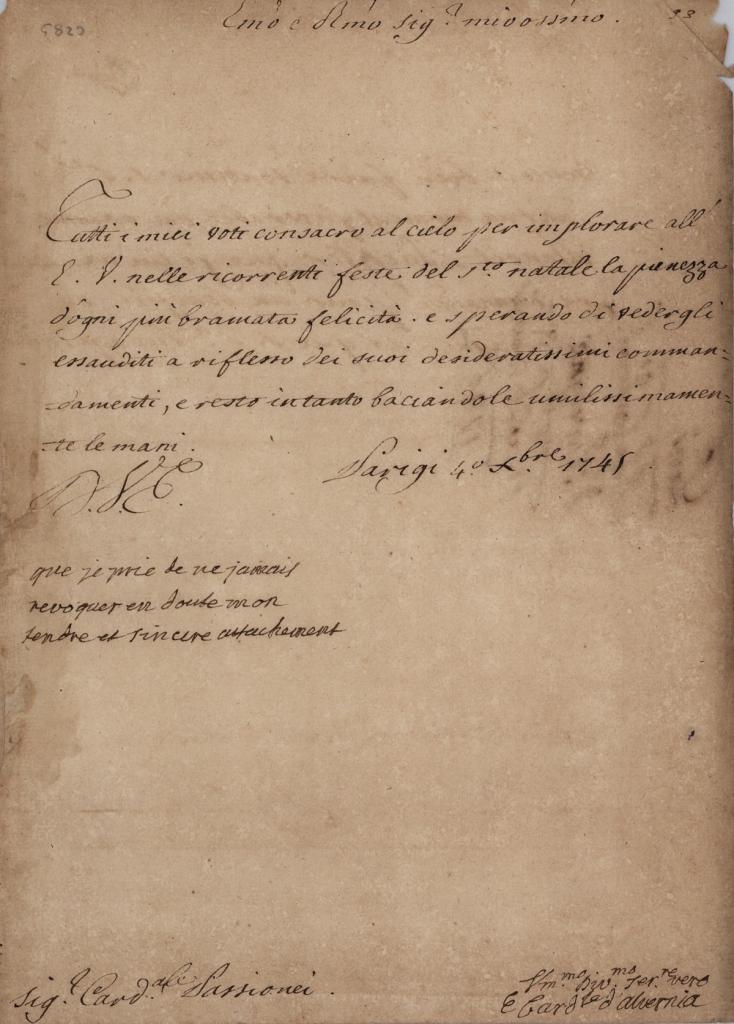 5823
33
Emo e Rmo Sig.r mio ossmo.
Tutti i miei voti consacro al cielo per implorare all'
E. V. nelle ricorrenti feste del s.to natale la pienezza
d'ogni più bramata felicità. e sperando di vedergli
essauditi a riflesso dei suoi desideratissimi comman=
=damenti, e resto intanto baciandole umilissimamen=
=te le mani.
Parigi 4.o Xbre. 1745.
D. V. E.
que je prie de ne jamais
revoquer en doute mon
tendre et sincere attachement
Sig.r Card.ale Passionei.
Um.mo Div.mo Ser.re vero
Il Card.le d'alvernia